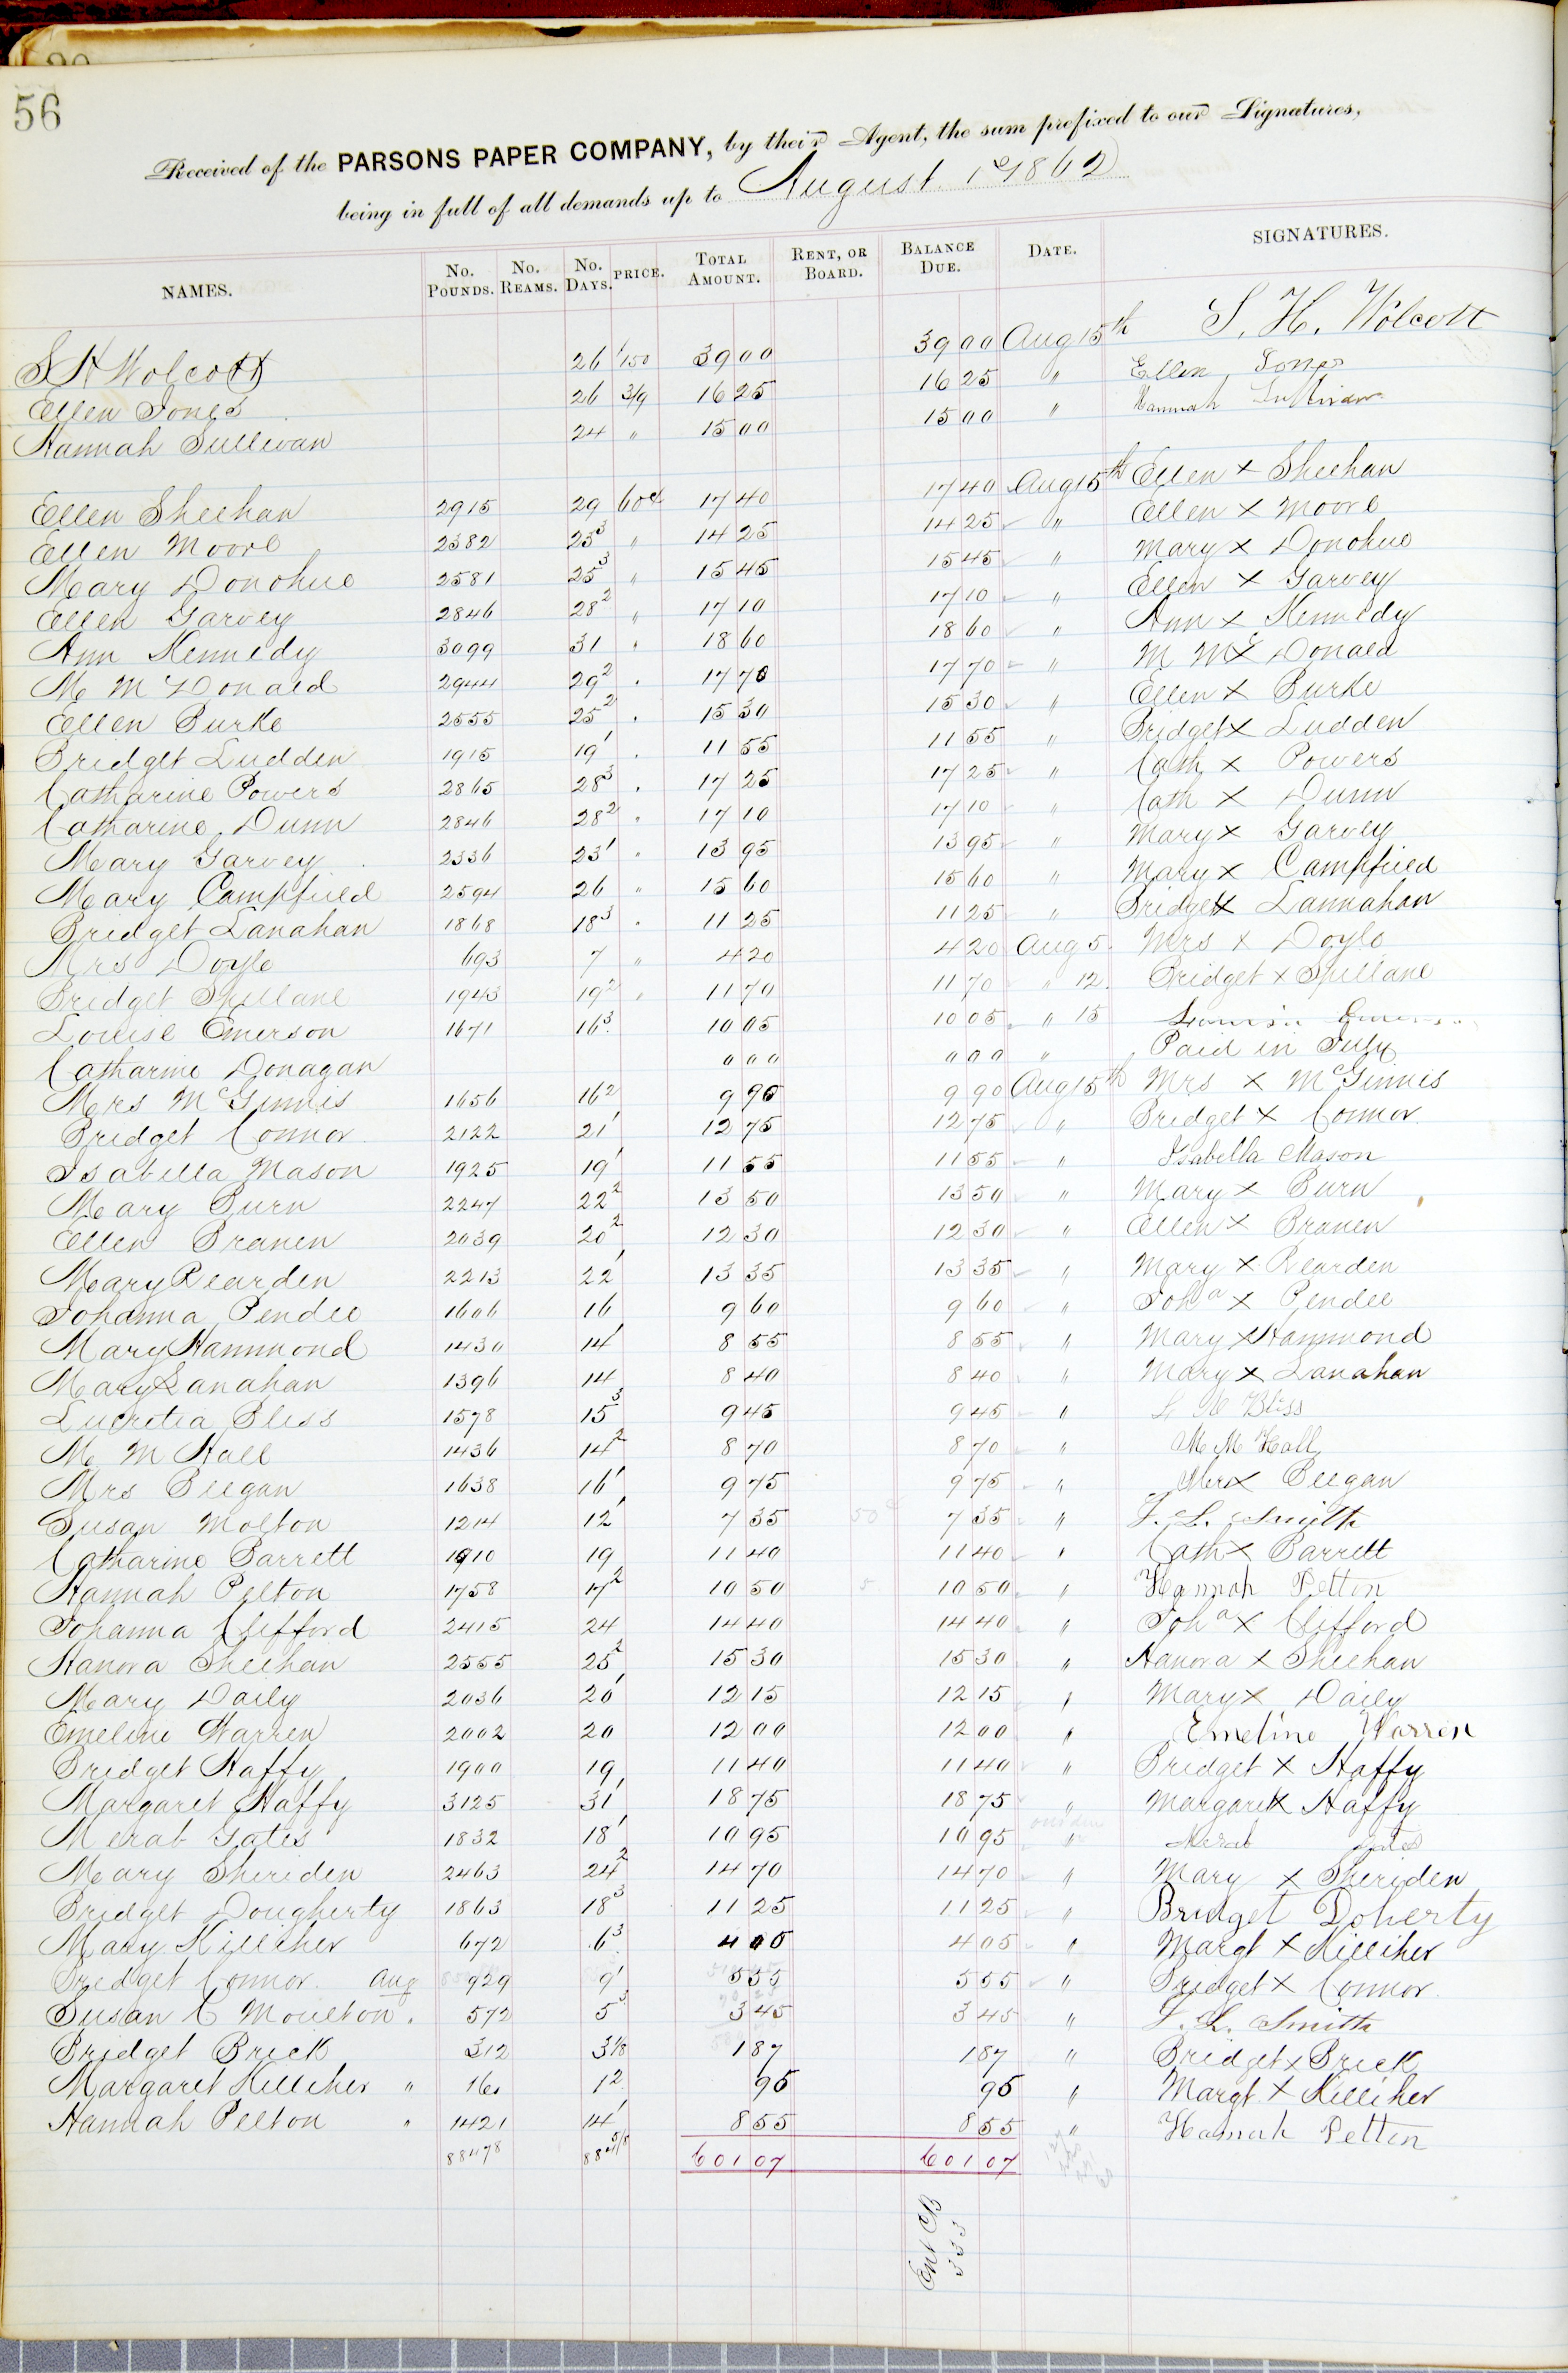 56
Received of the PARSONS PAPER COMPANY, by their Agent, the sum prefixed to our Signatures,
being in full of all demands up to August 1st 1862
NAMES. No. POUNDS. No. REAMS. No. DAYS. PRICE. TOTAL AMOUNT. RENT, OR BOARD. BALANCE DUE. DATE. SIGNATURES.
S H Wolcott 26 150 39 00 39 00 Aug 15th S. H. Wolcott
Ellen Jones 26 3/9 16 25 16 25 " Ellen Jones
Hannah Sullivan 24 " 15 00 15 00 " Hannah Sullivan
Ellen Sheehan 2915 29 60c 17 40 17 40 Aug 15th Ellen x Sheehan
Ellen Moore 2382 23 3 " 14 25 14 25 " Ellen x Moore
Mary Donohue 2581 25 3 " 15 45 15 45 " Mary x Donohue
Ellen Garvey 2846 28 2 " 17 10 17 10 " Ellen x Garvey
Ann Kennedy 3099 31 " 18 60 18 60 " Ann x Kennedy
M McDonald 2944 29 2 " 17 70 17 70 " M Mcx Donald
Ellen Burke 2555 25 2 " 15 30 15 30 " Ellen x Burke
Bridget Ludden 1915 19 1 " 11 55 11 55 " Bridget x Ludden
Catharine Powers 2865 28 3 " 17 25 17 25 " Cath x Powers
Catharine Dunn 2846 28 2 " 17 10 17 10 " Cath x Dunn
Mary Garvey 2336 23 1 " 13 95 13 95 " Mary x Garvey
Mary Campfield 2594 26 " 15 60 15 60 " Mary x Campfield
Bridget Lanahan 1868 18 3 " 11 25 11 25 " Bridget x Lannahan
Mrs Doyle 693 7 " 4 20 4 20 Aug 5. Mrs x Doyle
Bridget Spillane 1943 19 2 " 11 70 11 70 " 12. Bridget x Spillane
Louise Emerson 1671 16 3 10 05 10 05 " 15 Louisa Emerson
Catharine Donagan 0 00 0 00 " Paid in July
Mrs McGinnis 1656 16 2 9 90 9 90 Aug 15th Mrs x McGinnis
Bridget Connor 2122 21 1 12 75 12 75 " Bridget x Connor
Isabella Mason 1925 19 1 11 55 11 55 " Isabella Mason
Mary Burn 2247 22 2 13 50 13 50 " Mary x Burn
Ellen Branen 2039 20 2 12 30 12 30 " Ellen x Branen
Mary Rearden 2213 22 1 13 35 13 35 " Mary x Rearden
Johanna Pendee 1606 16 9 60 9 60 " Joha x Pendee
Mary Hammond 1430 14 1 8 55 8 55 " Mary x Hammond
Mary Lanahan 1396 14 8 40 8 40 " Mary x Lanahan
Lucretia Bliss 1578 15 3 9 45 9 45 " L M Bliss
M M Hall 1436 14 2 8 70 8 70 " M M Hall
Mrs Beegan 1638 16 1 9 75 9 75 " Mrs x Beegan
Susan Molton 1214 12 1 7 35 50 7 35 " F. L. Smith
Catharine Barrett 1910 19 11 40 11 40 " Cath x Barrett
Hannah Pelton 1758 17 2 10 50 5 10 50 " Hannah Pelton
Johanna Clifford 2415 24 14 40 14 40 " Joha x Clifford
Hanora Sheehan 2555 25 2 15 30 15 30 " Hanora x Sheehan
Mary Daily 2036 20 1 12 15 12 15 " Mary x Daily
Emeline Warren 2002 20 12 00 12 00 " Emeline Warren
Bridget Haffy 1900 19 11 40 11 40 " Bridget x Haffy
Margaret Haffy 3125 31 1 18 75 18 75 " Margaret x Haffy
Merab Gates 1832 18 1 10 95 10 95 " Merab Gates
Mary Sheriden 2463 24 2 14 70 14 70 " Mary x Sheriden
Bridget Dougherty 1863 18 3 11 25 11 25 " Bridget Doherty
Mary Killiher 672 6 3 4 05 4 05 " Margt x Killiher
Bridget Connor Aug 929 9 1 5 55 5 55 " Bridget x Connor
Susan C Moulton " 572 5 3 3 45 3 45 " F. L. Smith
Bridget Brick 312 3 1/8 1 87 1 87 " Bridget x Brick
Margaret Killiher " 160 1 2 95 95 " Margt x Killiher
Hannah Pelton " 1421 14 1 8 55 8 55 " Hannah Pelton
88478 884 5/8 601 07 601 07
Ent CB
333